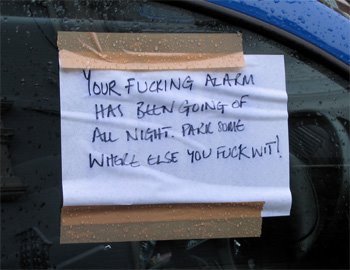 YOUR FUCKING ALARM
HAS BEEN GOING OF
ALL NIGHT. PARK SOME
WHERE ELSE YOU FUCKWIT!